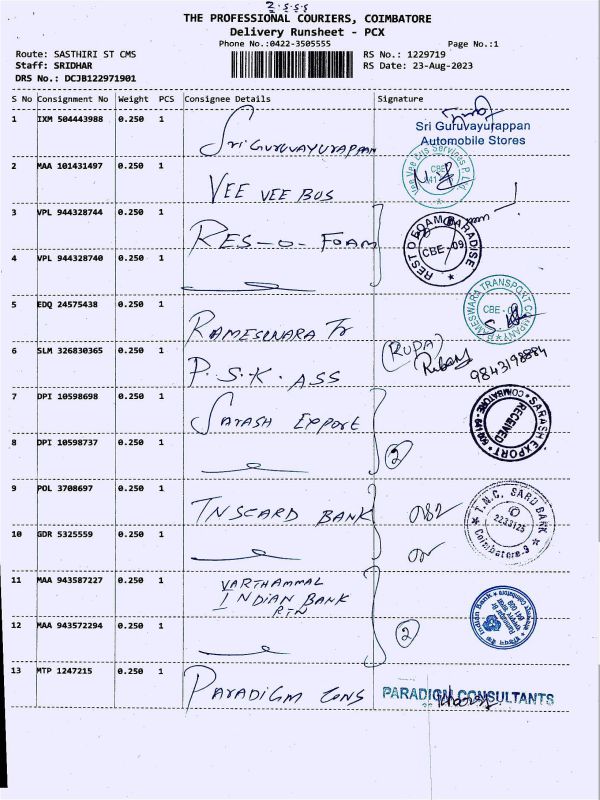 2.5.5.5
THE PROFESSIONAL COURIERS, COIMBATORE
Delivery Runsheet - PCX
Phone No.:0422-3505555 Page No.:1
Route: SASTHIRI ST CMS RS No.: 1229719
Staff: SRIDHAR RS Date: 23-Aug-2023
DRS No.: DCJB122971901
S No Consignment No Weight PCS Consignee Details Signature
1 IXM 504443988 0.250 1 Sri GURUVAYURAPPAN
Sri Guruvayurappan
Automobile Stores
2 MAA 101431497 0.250 1 VEE VEE BUS
Vee Vee Bus Services P Ltd.
CBE
3 VPL 944328744 0.250 1 RES-O-FOAM
REST O FOAM PARADISE
CBE-09
4 VPL 944328740 0.250 1
5 EDQ 24575438 0.250 1 RAMESWARA Tr
RAMESWARA TRANSPORT COMPANY
CBE
6 SLM 326830365 0.250 1 P.S.K. ASS (RUPA)
9843198884
7 DPI 10598698 0.250 1 SARASH EXPORT
SARASH EXPORT
RECEIVED
COIMBATORE
8 DPI 10598737 0.250 1 2
9 POL 3708697 0.250 1 TNSCARD BANK
T.N.C. SARD BANK
2233125
Coimbatore-9
10 GDR 5325559 0.250 1
11 MAA 943587227 0.250 1 VARTHAMMAL
INDIAN BANK
RTN
Indian Bank
12 MAA 943572294 0.250 1 2
13 MTP 1247215 0.250 1 PARADIGM CONS
PARADIGM CONSULTANTS